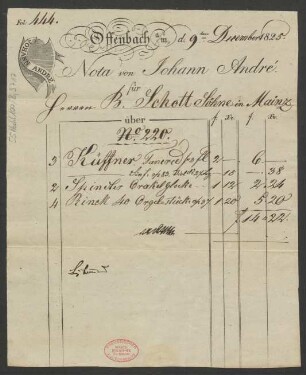 Fol. 444.
Offenbach a/m. d. 9ten December 1825.
JOHANN ANDRÉ
Nota von Johann André
für
Herren B. Schott Söhne in Mainz
über
No. 220.
f Xr. f Xr.
3 Küffner 2 — 6 —
18 — . 38
2 Spindler Orakelglocke 1 12 2. 24
4 Rinck 40 Orgelstücke 1 20 5 20
f 14 22